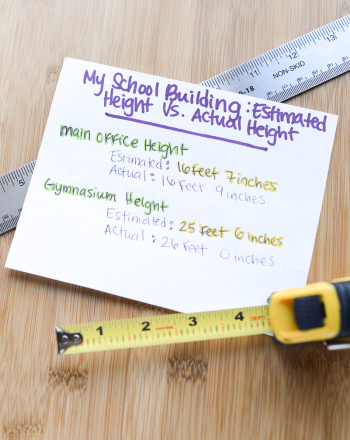 My School Building: Estimated
Height Vs. Actual Height
Main Office Height
Estimated: 16 feet 7 inches
Actual: 16 feet 9 inches
Gymnasium Height
Estimated: 25 feet 6 inches
Actual: 26 feet 0 inches
11 12 13
NON-SKID
1 2 3 4